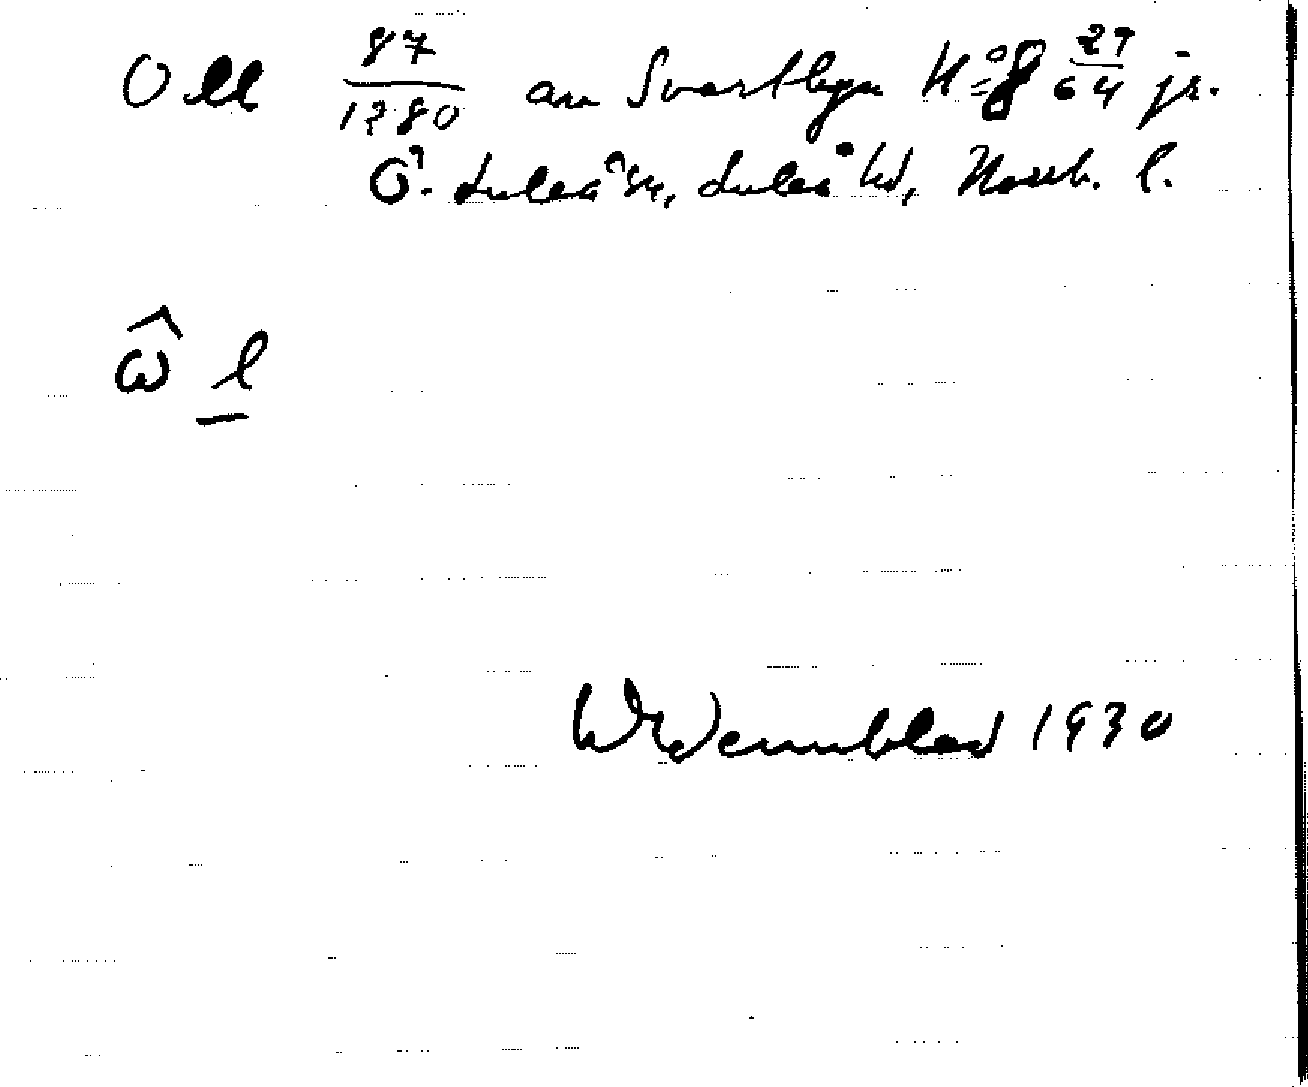 Oll 87/1280 au Svartlegu N:o 8 27/64 jr.
Ö. Luleå sn, Luleå hd, Norrb. l.
ω̂ l
W Wennblad 1930